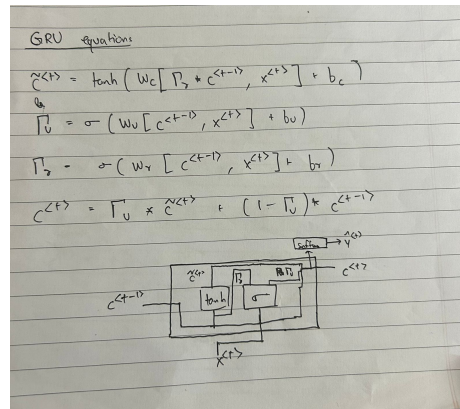 GRU equations
c̃<t> = tanh ( Wc [ Γr * c<t-1>, x<t> ] + bc )
Γu = σ ( Wu [ c<t-1>, x<t> ] + bu )
Γr = σ ( Wr [ c<t-1>, x<t> ] + br )
c<t> = Γu * c̃<t> + (1 - Γu) * c<t-1>
softmax → ŷ<t>
c̃<t> Γr Γu c<t>
c<t-1> tanh σ
x<t>